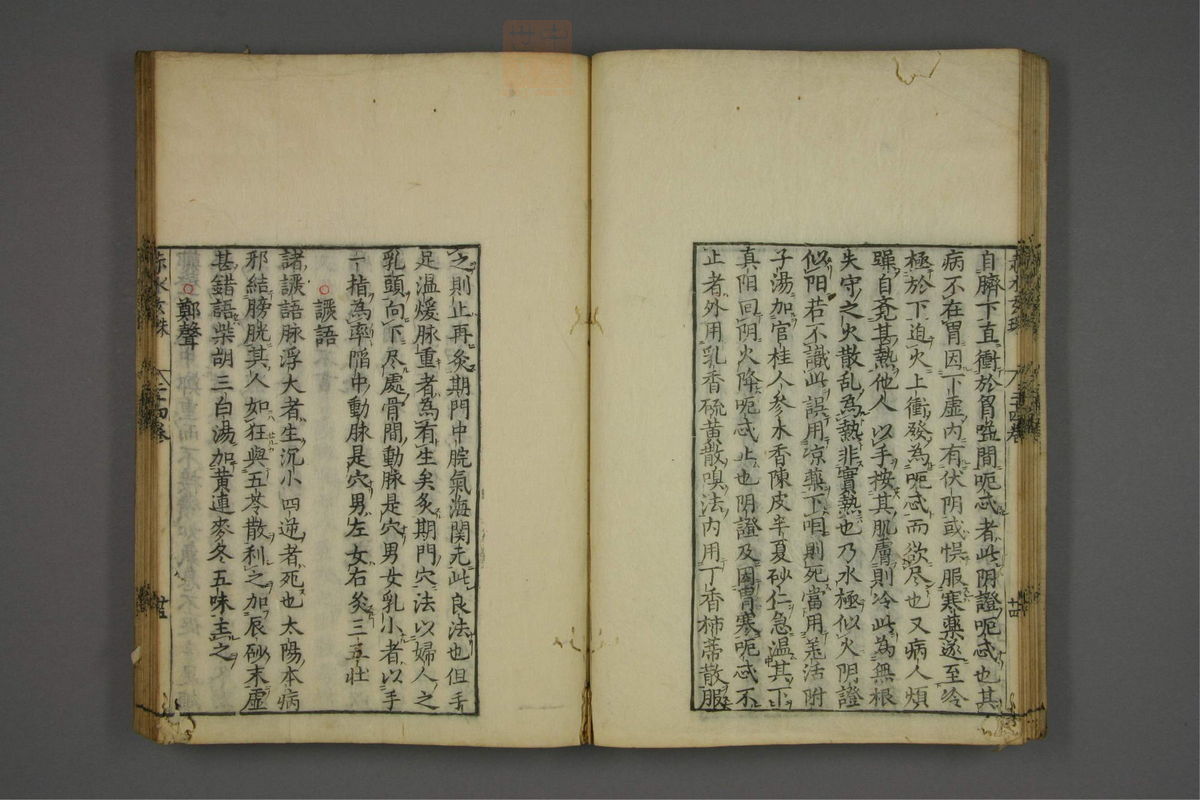 自臍下直衝於胷嗌間呃忒者此阴證呃忒也其
病不在胃因下虛内有伏阴或悞服寒藥遂至冷
極於下迫火上衝發為呃忒而欲尽也又病人煩
躁自竟甚熱他人以手按其肌膚則冷此為無根
失守之火散乱為熱非實熱也乃水極似火阴證
似阳若不識此誤用凉藥下咽則死當用羗活附
子湯加官桂人参木香陳皮半夏砂仁急温其下
真阳回阴火降呃忒止也阴證及因胃寒呃忒不
止者外用乳香硫黄散嗅法内用丁香柿蒂散服
赤水玄珠 二十四卷 廿四
之則止再灸期門中脘氣海関元此良法也但手
足温煖脉重者為有生矣灸期門穴法以婦人之
乳頭向下尽處骨間動脉是穴男女乳小者以手
一指為率陷中動脉是穴男左女右灸三五壮
○譺語
諸譺語脉浮大者生沉小四逆者死也太陽本病
邪結膀胱其人如狂與五苓散利之加辰砂末虛
甚錯語柴胡三白湯加黄連麥冬五味主之
○鄭聲
赤水玄珠 二十四卷 廿五